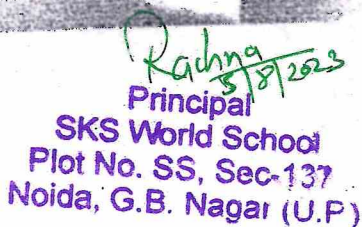 Rachna
5/8/2023
Principal
SKS World School
Plot No. SS, Sec-137
Noida, G.B. Nagar (U.P)